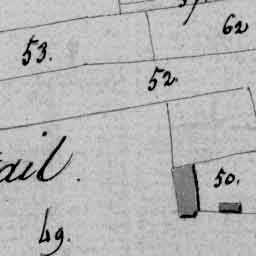 62
53.
52.
ail.
50.
49.